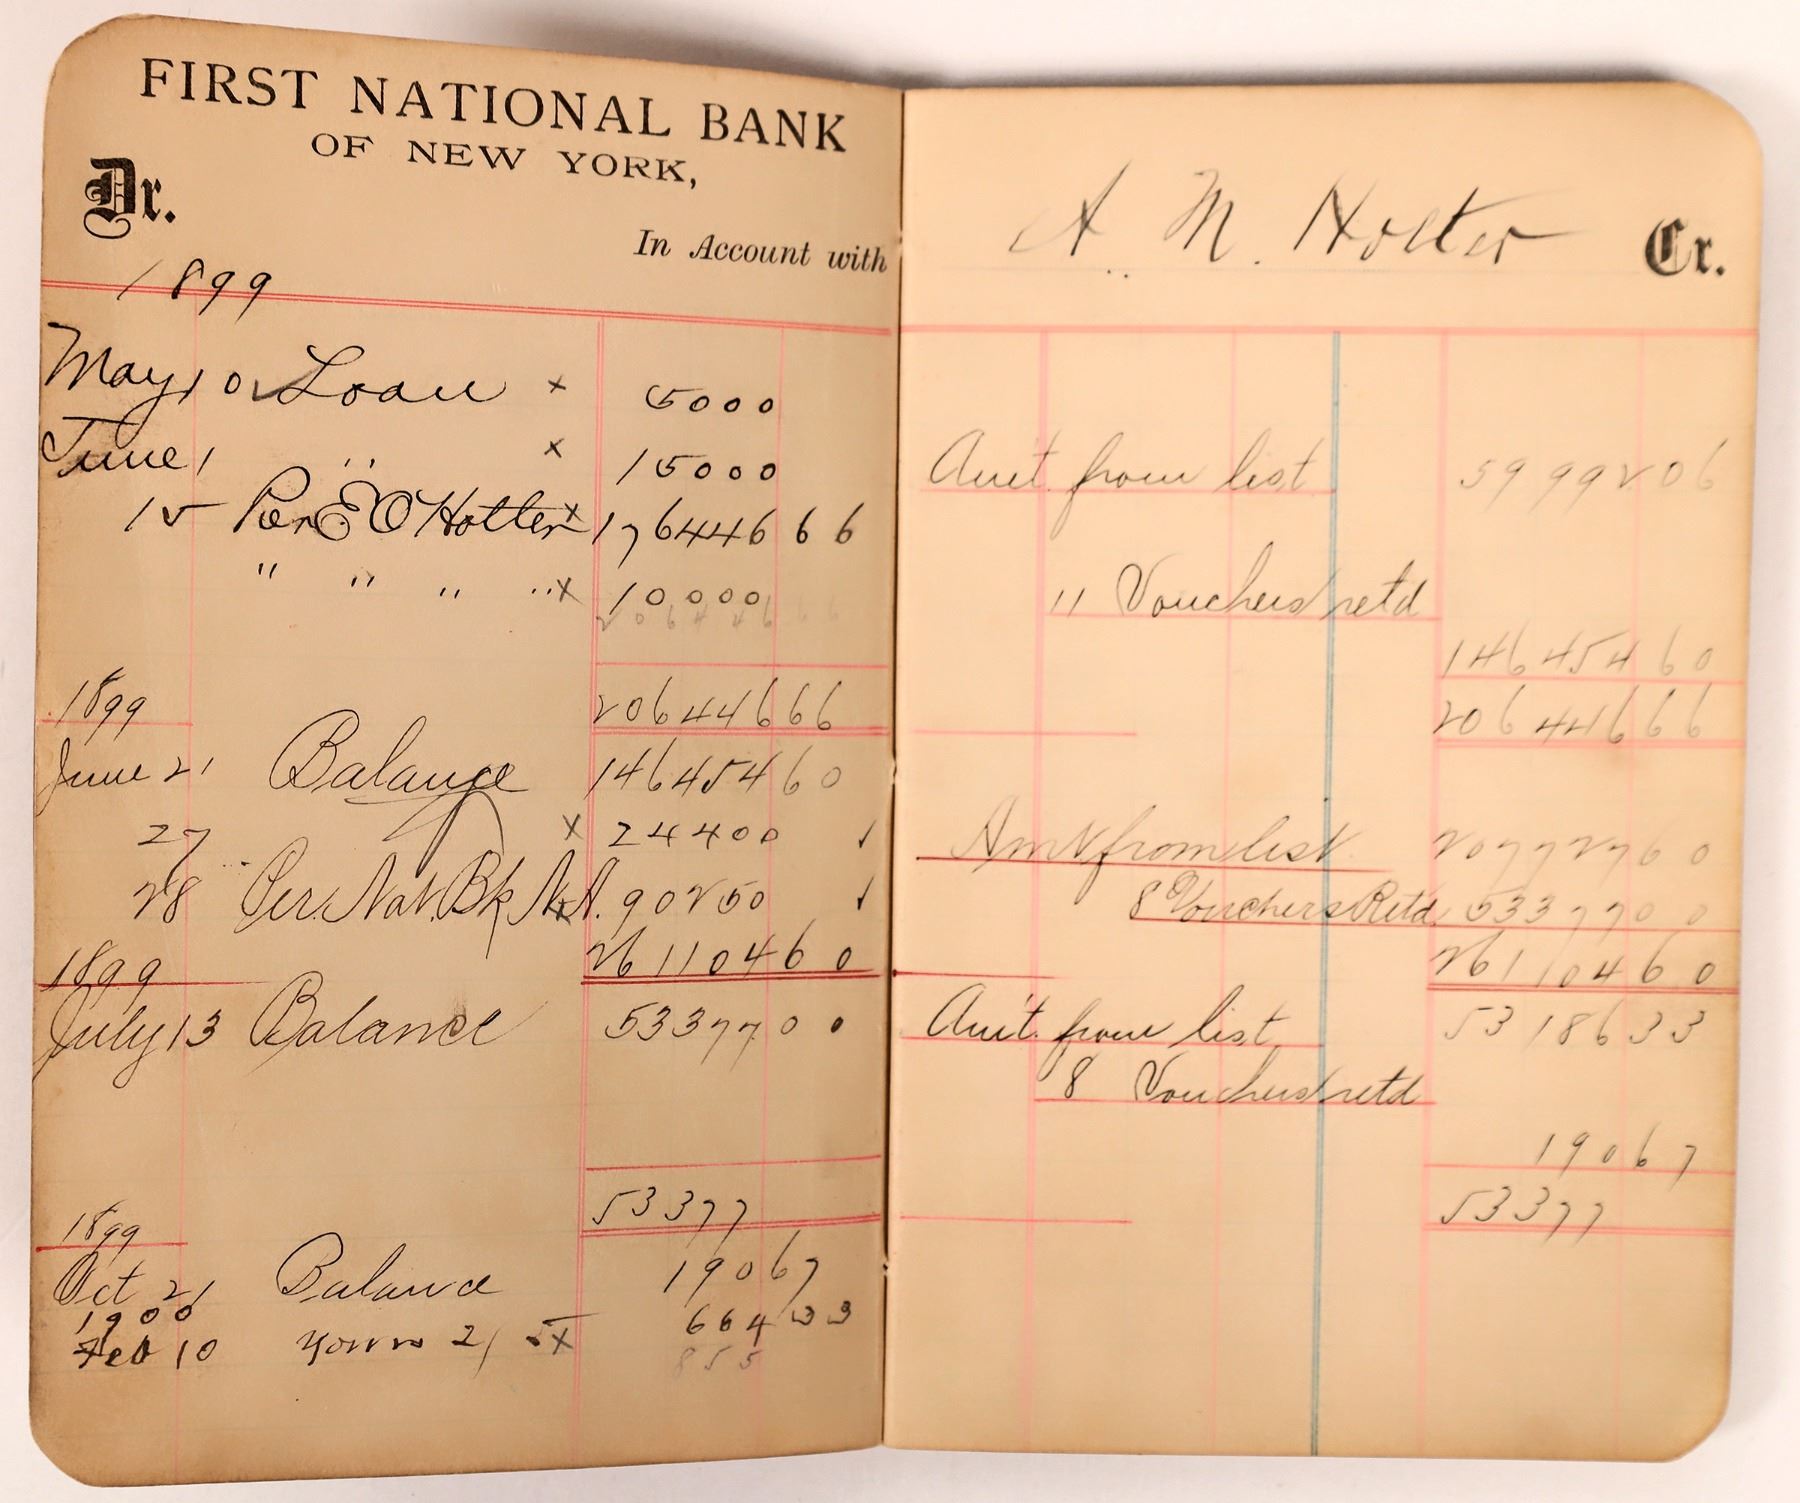 FIRST NATIONAL BANK
OF NEW YORK,
Dr.
In Account with
1899
May 10 Loan x 5000
June 1 " x 15000
15 Per E O Holter x 176446 66
" " " " x 10000
206446 66
1899
206446 66
June 21 Balance 146454 60
27 x 24400 ✓
28 Per Nat. Bk N.A. x 90250 ✓
261104 60
1899
July 13 Balance 53377 00
53377
1899
Oct 21 Balance 190 67
1900
Feb 10 x 664 33
855
A. M. Holter Cr.
Am't from list 59992 06
11 Vouchers retd
146454 60
206446 66
Amt from list 207727 60
8 Vouchers Retd 53377 00
261104 60
Am't from list 53186 33
8 Vouchers retd
190 67
53377